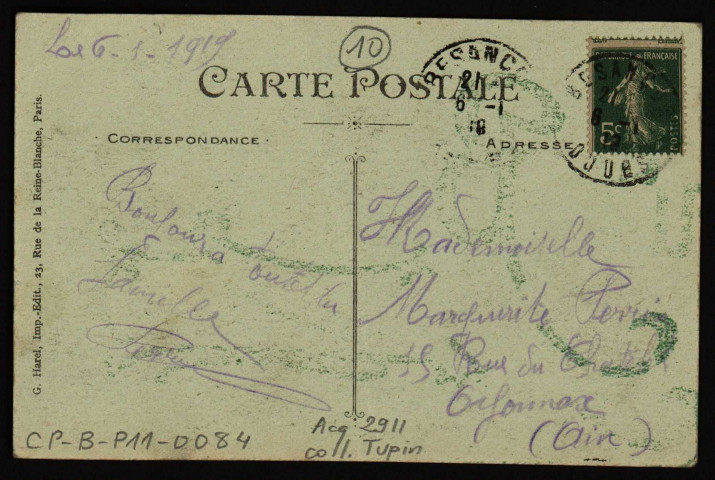 Le 6-1-1919
10
BESANÇ
21
6 -1
19
BESAN
2
6 -1
DOUBS
RÉPUBLIQUE FRANÇAISE
5c
POSTES
CARTE POSTALE
CORRESPONDANCE
ADRESSE
Bonjour a toute la
famille
Mademoiselle
Marguerite Perrin
15 Rue du
Oyonnax
(Ain)
G. Harel, Imp.-Edit., 23, Rue de la Reine-Blanche, Paris.
CP-B-P11-0084
Acq 2911
coll. Tupin